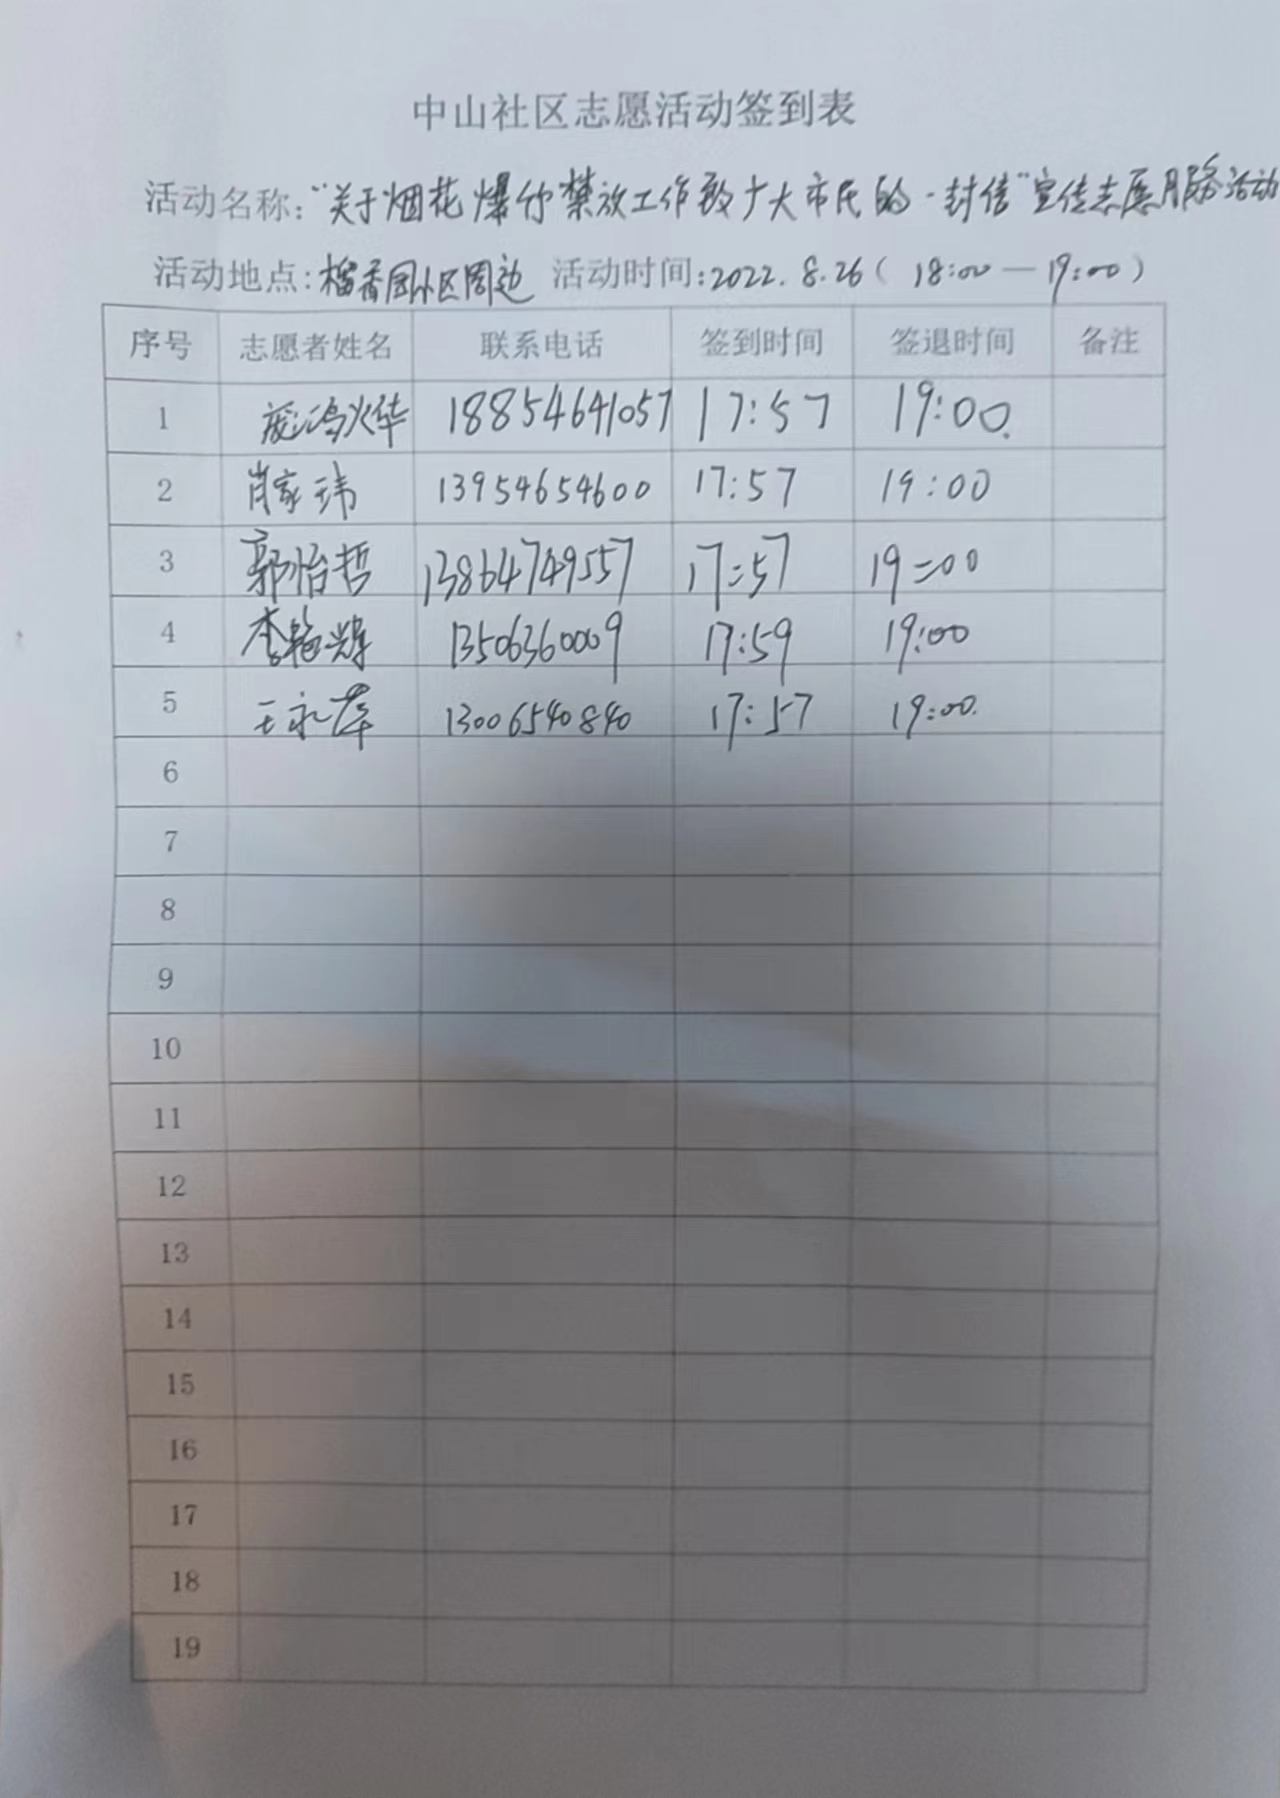 中山社区志愿活动签到表
活动名称:“关于烟花爆竹禁放工作致广大市民的一封信”宣传志愿服务活动
活动地点:榴香园小区周边 活动时间:2022.8.26(18:00—19:00)
序号 志愿者姓名 联系电话 签到时间 签退时间 备注
1 18854641057 17:57 19:00
2 肖家玮 13954654600 17:57 19:00
3 郭怡哲 13864749557 17:57 19:00
4 李艳辉 13506360009 17:59 19:00
5 王永萍 13006540840 17:57 19:00
6
7
8
9
10
11
12
13
14
15
16
17
18
19